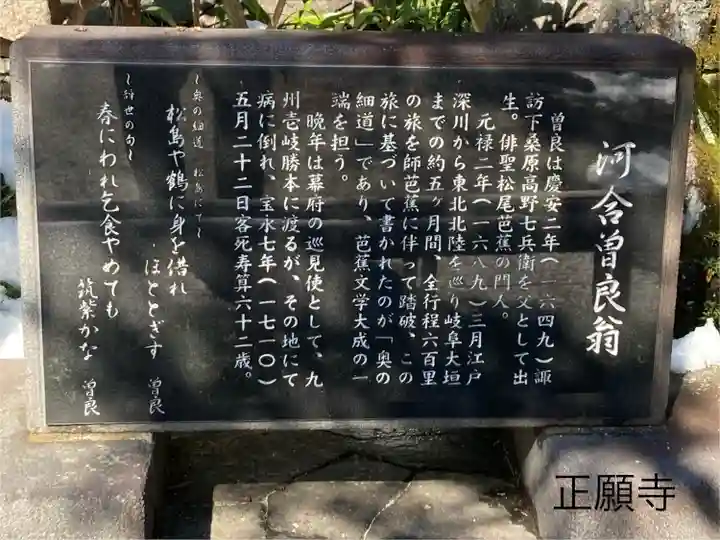 河合曽良翁
曽良は慶安二年(一六四九)諏
訪下桑原高野七兵衛を父として出
生。俳聖松尾芭蕉の門人。
元禄二年(一六八九)三月江戸
深川から東北北陸を巡り岐阜大垣
までの約五ヶ月間、全行程六百里
の旅を師芭蕉に伴って踏破、この
旅に基づいて書かれたのが「奥の
細道」であり、芭蕉文学大成の一
端を担う。
晩年は幕府の巡見使として、九
州壱岐勝本に渡るが、その地にて
病に倒れ、宝永七年(一七一〇)
五月二十二日客死寿算六十二歳。
〜奥の細道 松島にて〜
松島や鶴に身を借れ
ほととぎす 曽良
〜辞世の句〜
春にわれ乞食やめても
筑紫かな 曽良
正願寺